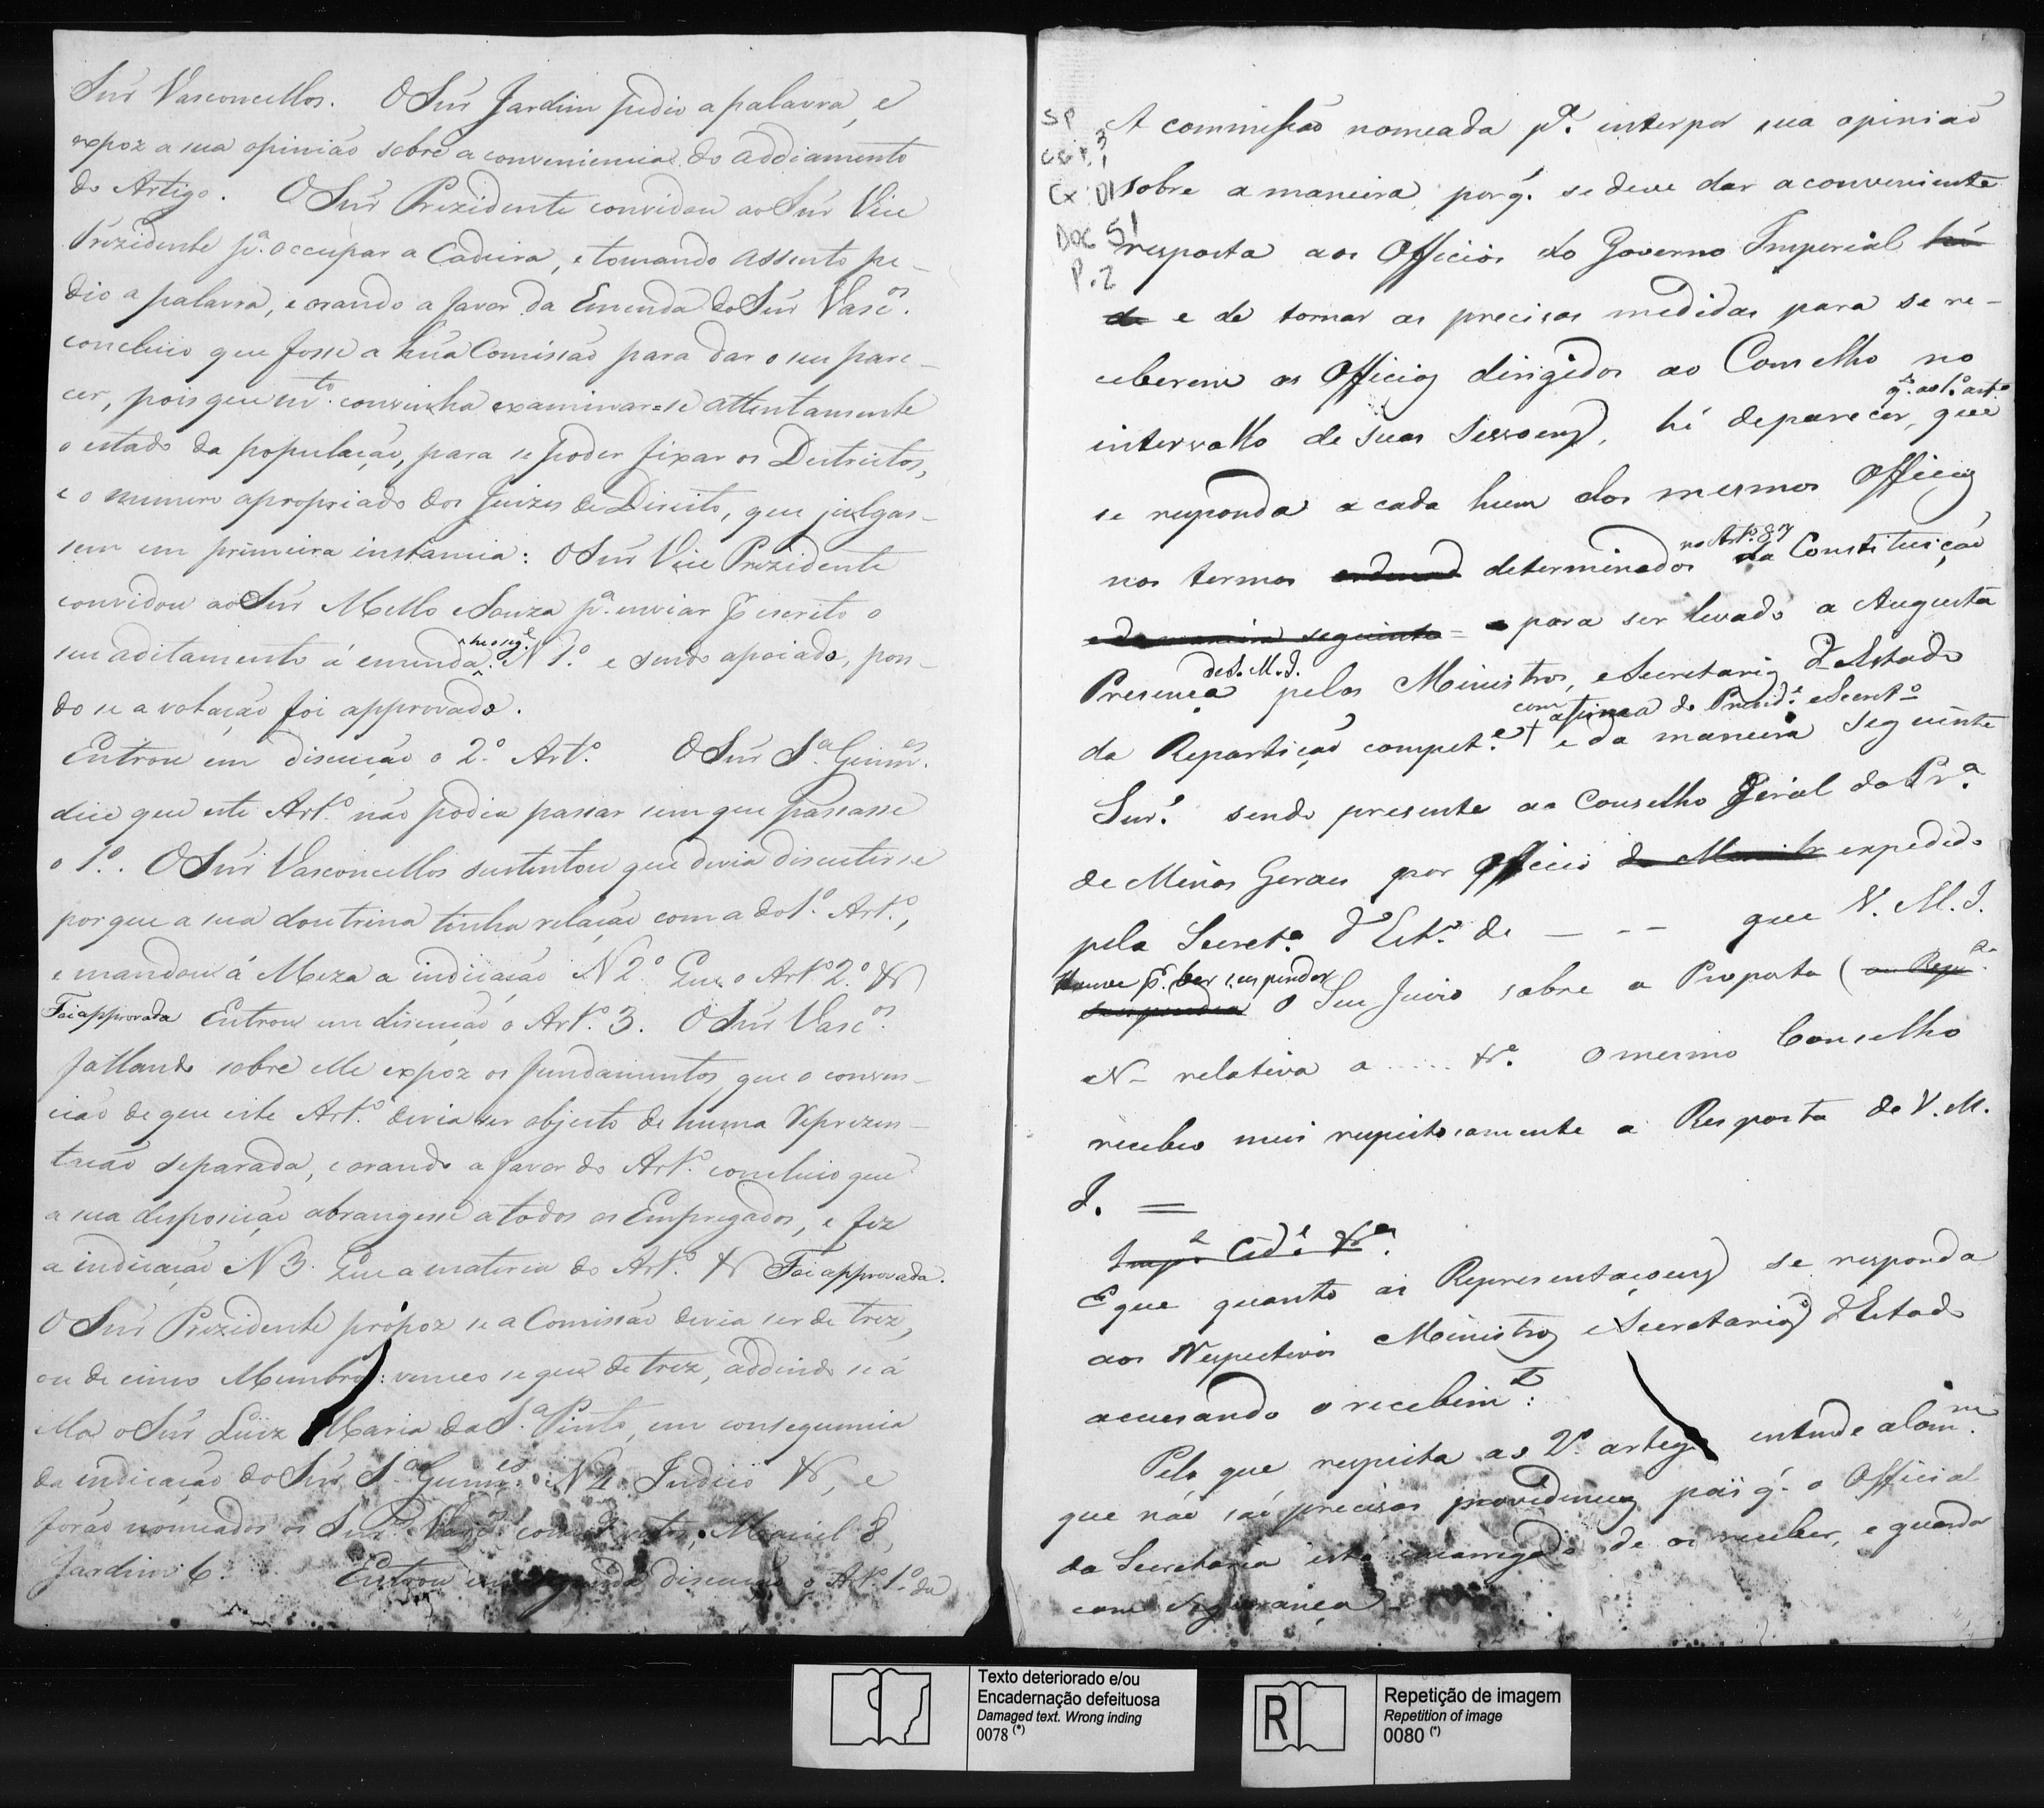 Snr̃ Vasconcellos. O Snr̃ Jardim pedio a palavra, e
expoz a sua opinião sobre a conveniencia do addiamento
do Artigo. O Snr̃ Prezidente convidou ao Snr̃ Vice
Prezidente pª. occupar a Cadeira, e tomando assento pe-
dio a palavra, e orando a favor da Emenda do Snr̃ Vascos.
concluio que fosse a hũa Comissão para dar o seu pare-
cer, pois que mto. convinha examinar=se attentamente
o estado da população, para se poder fixar os Destrictos,
e o numero apropriado dos Juizes de Direito, que julgas-
sem em primeira instancia: O Snr̃ Vice Prezidente
convidou ao Snr̃ Mello e Souza pª. enviar p̃ escrito o
seu aditamento á emenda. N 1.º e sendo apoiado, pon-
do se a votação foi approvado.
Entrou em discução o 2.º Art.º O Snr̃ Sª Guimes.
dice que este Art.º não podia passar sem que passasse
o 1.º. O Snr̃ Vasconcellos sustentou que devia discutir se
porque a sua doutrina tinha relação com a do 1.º Art.º,
e mandou á Meza a indicação N 2.º Que o Art.º 2.º &
Foi approvada Entrou em discução o Art.º 3. O Snr̃ Vascos.
fallando sobre elle expoz os fundamentos, que o conven-
cião de que este Art.º devia ser objecto de huma Reprezen-
tação separada, e orando a favor do Art.º concluio que
a sua disposição abrangesse a todos os Empregados, e fez
a indicação N 3. Que a materia do Art.º & Foi approvada.
O Snr̃ Prezidente propoz se a Comissão devia ser de trez,
ou de cinco Membros: venceo se que de trez, addindo se á
ella o Snr̃ Luiz Maria da Sª Pinto, em consequencia
da indicação do Snr̃ Sª Guimes. N 4. Indico &, e
forão nomeados os Snrs. Vascos. com votos, Maciel 8,
Jardim 6. Entrou em segunda discução o Art.º 1.º da
SP
CGP. 3
1
Cx: 01
Doc 51
P.2
A commissão nomeada pª. interpor sua opinião
sobre a maneira, porq̃. se deve dar a conveniente
resposta aos Officios do Governo Imperial
e de tomar as precisas medidas para se re-
ceberem os Officios dirigidos ao Conselho no
intervallo de suas Sessoens, hé de parecer, que
q.to ao 1.º art.º
se responda a cada hum dos mesmos Officios
nos termos determinados da Constituição
no Art.º 87
e da maneira seguinte = para ser levado a Augusta
Presença de S. M. I. pelos Ministros, e Secretarios d'Estado
com assignª do Presid.e e Secretº
da Repartição compet.e e da maneira seguinte
Snr.' sendo presente ao Conselho Geral da Prª.
de Minas Geraes por Officio expedido
pela Secretª. d'Estº. de - - - que V. M. I.
Houve p̃. bem suspender
o Seu Juizo sobre a Proposta (
N- relativa a ..... &ª. O mesmo Conselho
recebeo mui respeitosamente a Resposta de V. M.
I. =
Imp.l Cid.e &ª.
E que quanto as Representaçoens se responda
aos Respectivos Ministros e Secretarios d'Estado
accusando o recebimto:
Pelo que respeita ao 2.º artigo entende a Com.m
que não são precisas providencias pois q̃. o Official
da Secretaria está encarregado de os receber, e guardar
com segurança.
Texto deteriorado e/ou
Encadernação defeituosa
Damaged text. Wrong inding
0078 (*)
R
Repetição de imagem
Repetition of image
0080 (*)